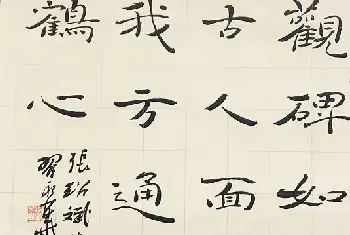 觀碑如
古人面
我方通
鶴心
張